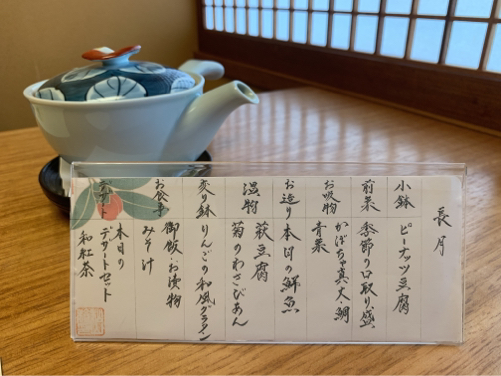 長月
小鉢 ピーナッツ豆腐
前菜 季節の口取り盛
お吸物 かぼちゃ真丈・鯛
青菜
お造り 本日の鮮魚
温物 萩豆腐
菊のわさびあん
変り鉢 りんごの和風グラタン
お食事 御飯・お漬物
みそ汁
デザート 本日のデザートセット
和紅茶